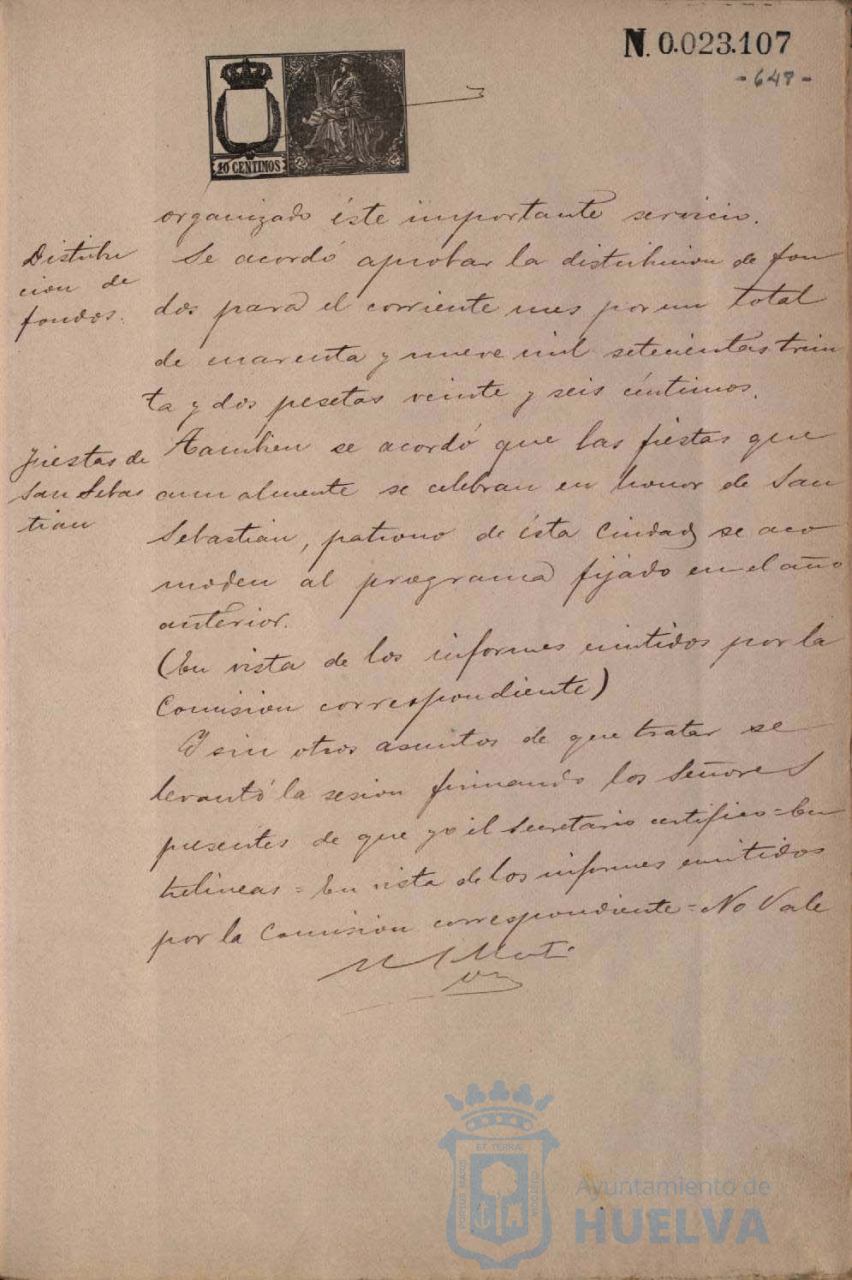 N. 0.023.107
- 648 -
10 CENTIMOS
organizado éste importante servicio.
Distribu
cion de
fondos.
Se acordó aprobar la distribucion de fon
dos para el corriente mes por un total
de cuarenta y nueve mil setecientas trein
ta y dos pesetas veinte y seis céntimos.
Fiestas de
San Sebas
tian
Tambien se acordó que las fiestas que
anualmente se celebran en honor de San
Sebastián, patrono de ésta Ciudad, se aco
moden al programa fijado en el año
anterior.
(En vista de los informes emitidos por la
Comision correspondiente)
Y sin otros asuntos de que tratar se
levantó la sesion firmando los Señores
presentes de que yo el Secretario certifico = En
trelineas = En vista de los informes emitidos
por la Comision correspondiente = No Vale
ET TERRAE
PORTUS MARIS
CUSTODIA
Ayuntamiento de
HUELVA